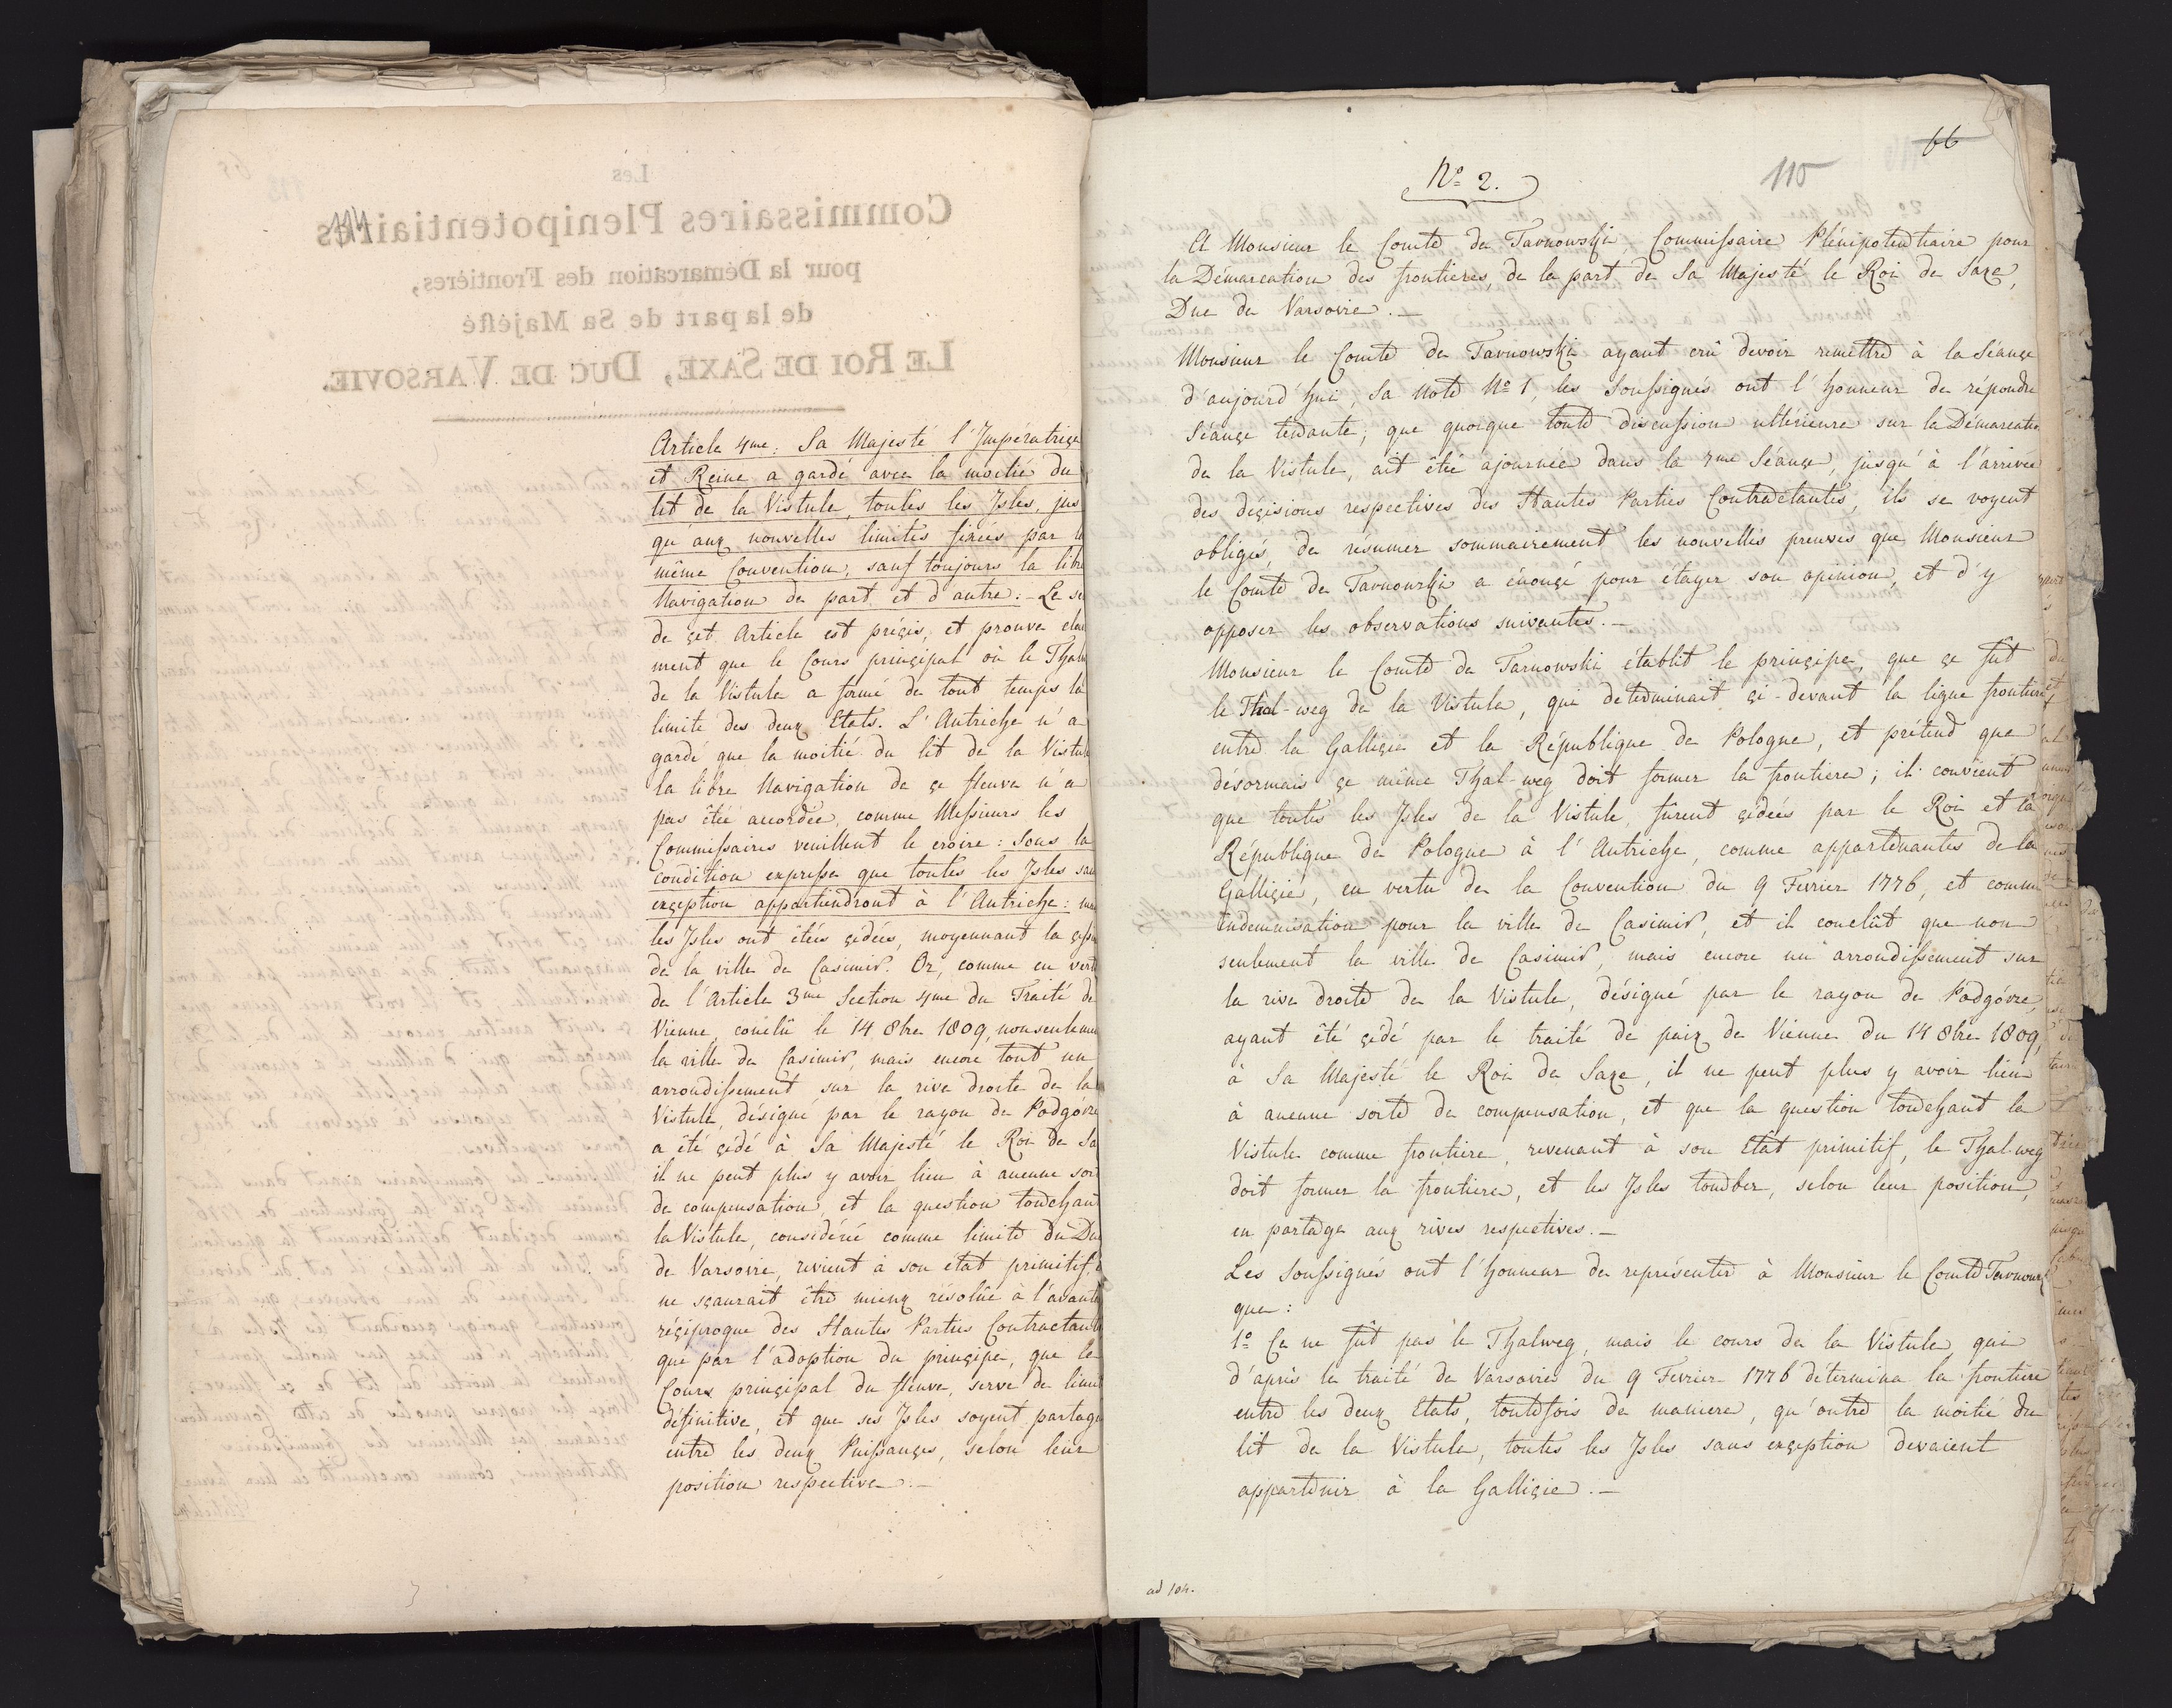 114
Article 4me: Sa Majesté l'Impératrice
et Reine a gardé avec la moitié du
lit de la Vistule, toutes les Isles, jus
qu'aux nouvelles limites fixées par la
même Convention, sauf toujours la libre
Navigation de part et d'autre. - Le se
de çet Article est préçis, et prouve clai
ment que le Cours prinçipal où le Thalw
de la Vistule a formé de tout temps la
limite des deux Etats. L'Autriche n'a
gardé que la moitié du lit de la Vistule
la libre Navigation de çe fleuve n'a
pas êtée accordée, comme Messieurs les
Commissaires veuillent le croire: Sous la
condition expresse que toutes les Isles sans
exçeption appartiendront à l'Autriche: mais
les Isles ont êtées çédées, moyennant la çessi
de la ville de Casimir. Or, comme en vertu
de l'Article 3me Section 4me du Traité de
Vienne, conclû le 14 8bre 1809, nonseuleme
la ville de Casimir, mais encore tout un
arrondissement sur la rive droite de la
Vistule, désigné par le rayon de Podgórze
a êté çédé à Sa Majesté le Roi de Sa
il ne peut plus y avoir lieu à aucune sort
de compensation, et la question touchant
la Vistule, considérée comme limite du Du
de Varsovie, revient à son état primitif,
ne sçaurait être mieux résolüe à l'avanta
réçiproque des Hautes Parties Contractant
que par l'adoption du prinçipe, que le
Cours prinçipal du fleuve, serve de limit
définitive, et que ses Isles soyent partagé
entre les deux Puissançes, selon leur
position respective. -
66
115
No 2.
A Monsieur le Comte de Tarnowski, Commissaire Plénipotentiaire pour
la Démarcation des frontieres, de la part de Sa Majesté le Roi de Saxe,
Duc de Varsovie. -
Monsieur le Comte de Tarnowski ayant crû devoir remettre à la Séançe
d'aujourd'hui, Sa Note No 1, les Soussignés ont l'honneur de répondre
Séançe tenante; que quoique toute discussion ultérieure sur la Démarcatio
de la Vistule, ait êté ajournée dans la 7me Séançe, jusqu'à l'arrivée
des déçisions respectives des Hautes Parties Contractantes, ils se voyent
obligés, de résumer sommairement les nouvelles preuves que Monsieur
le Comte de Tarnowski a énonçé pour étayer son opinion, et d'y
opposer les observations suivantes. -
Monsieur le Comte de Tarnowski établit le prinçipe, que çe fut
le Thal-weg de la Vistule, qui determinait çi-devant la ligne frontiere
entre la Galliçie et la République de Pologne, et prétend que
désormais çe même Thal-weg doit former la frontiere; il convient
que toutes les Isles de la Vistule, fûrent çédées par le Roi et la
République de Pologne à l'Autriche, comme appartenantes de la
Galliçie, en vertu de la Convention du 9 Fevrier 1776, et comme
indemnisation pour la ville de Casimir, et il conclût que non
seulement la ville de Casimir, mais encore un arrondissement sur
la rive droite de la Vistule, désigné par le rayon de Podgórze,
ayant êté çédé par le traité de paix de Vienne du 14 8bre 1809,
à Sa Majesté le Roi de Saxe, il ne peut plus y avoir lieu
à aucune sorte de compensation, et que la question touchant la
Vistule comme frontiere, revenant à son Etat primitif, le Thal-weg
doit former la frontiere, et les Isles tomber, selon leur position,
en partage aux rives respectives. -
Les Soussignés ont l'honneur de représenter à Monsieur le Comte Tarnowski
que:
1o Ce ne fût pas le Thalweg, mais le cours de la Vistule, qui
d'après le traité de Varsovie du 9 Fevrier 1776 détermina la frontiere
entre les deux Etats, toutefois de maniere, qu'outre la moitié du
lit de la Vistule, toutes les Isles sans exçeption devaient
appartenir à la Galliçie. -
ad 104.